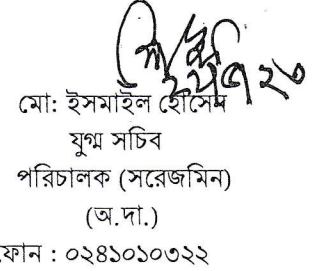 মো: ইসমাইল হোসেন
যুগ্ম সচিব
পরিচালক (সরেজমিন)
(অ.দা.)
ফোন : ০২৪১০১০৩২২